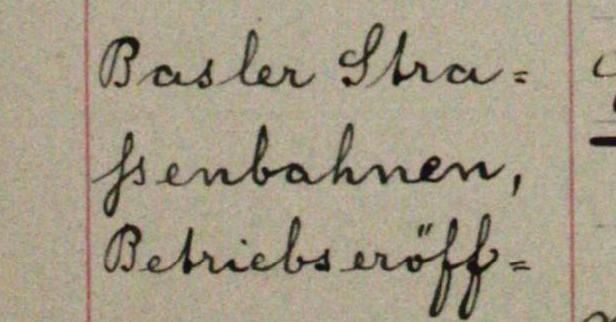 Basler Stra=
ssenbahnen,
Betriebseröff=